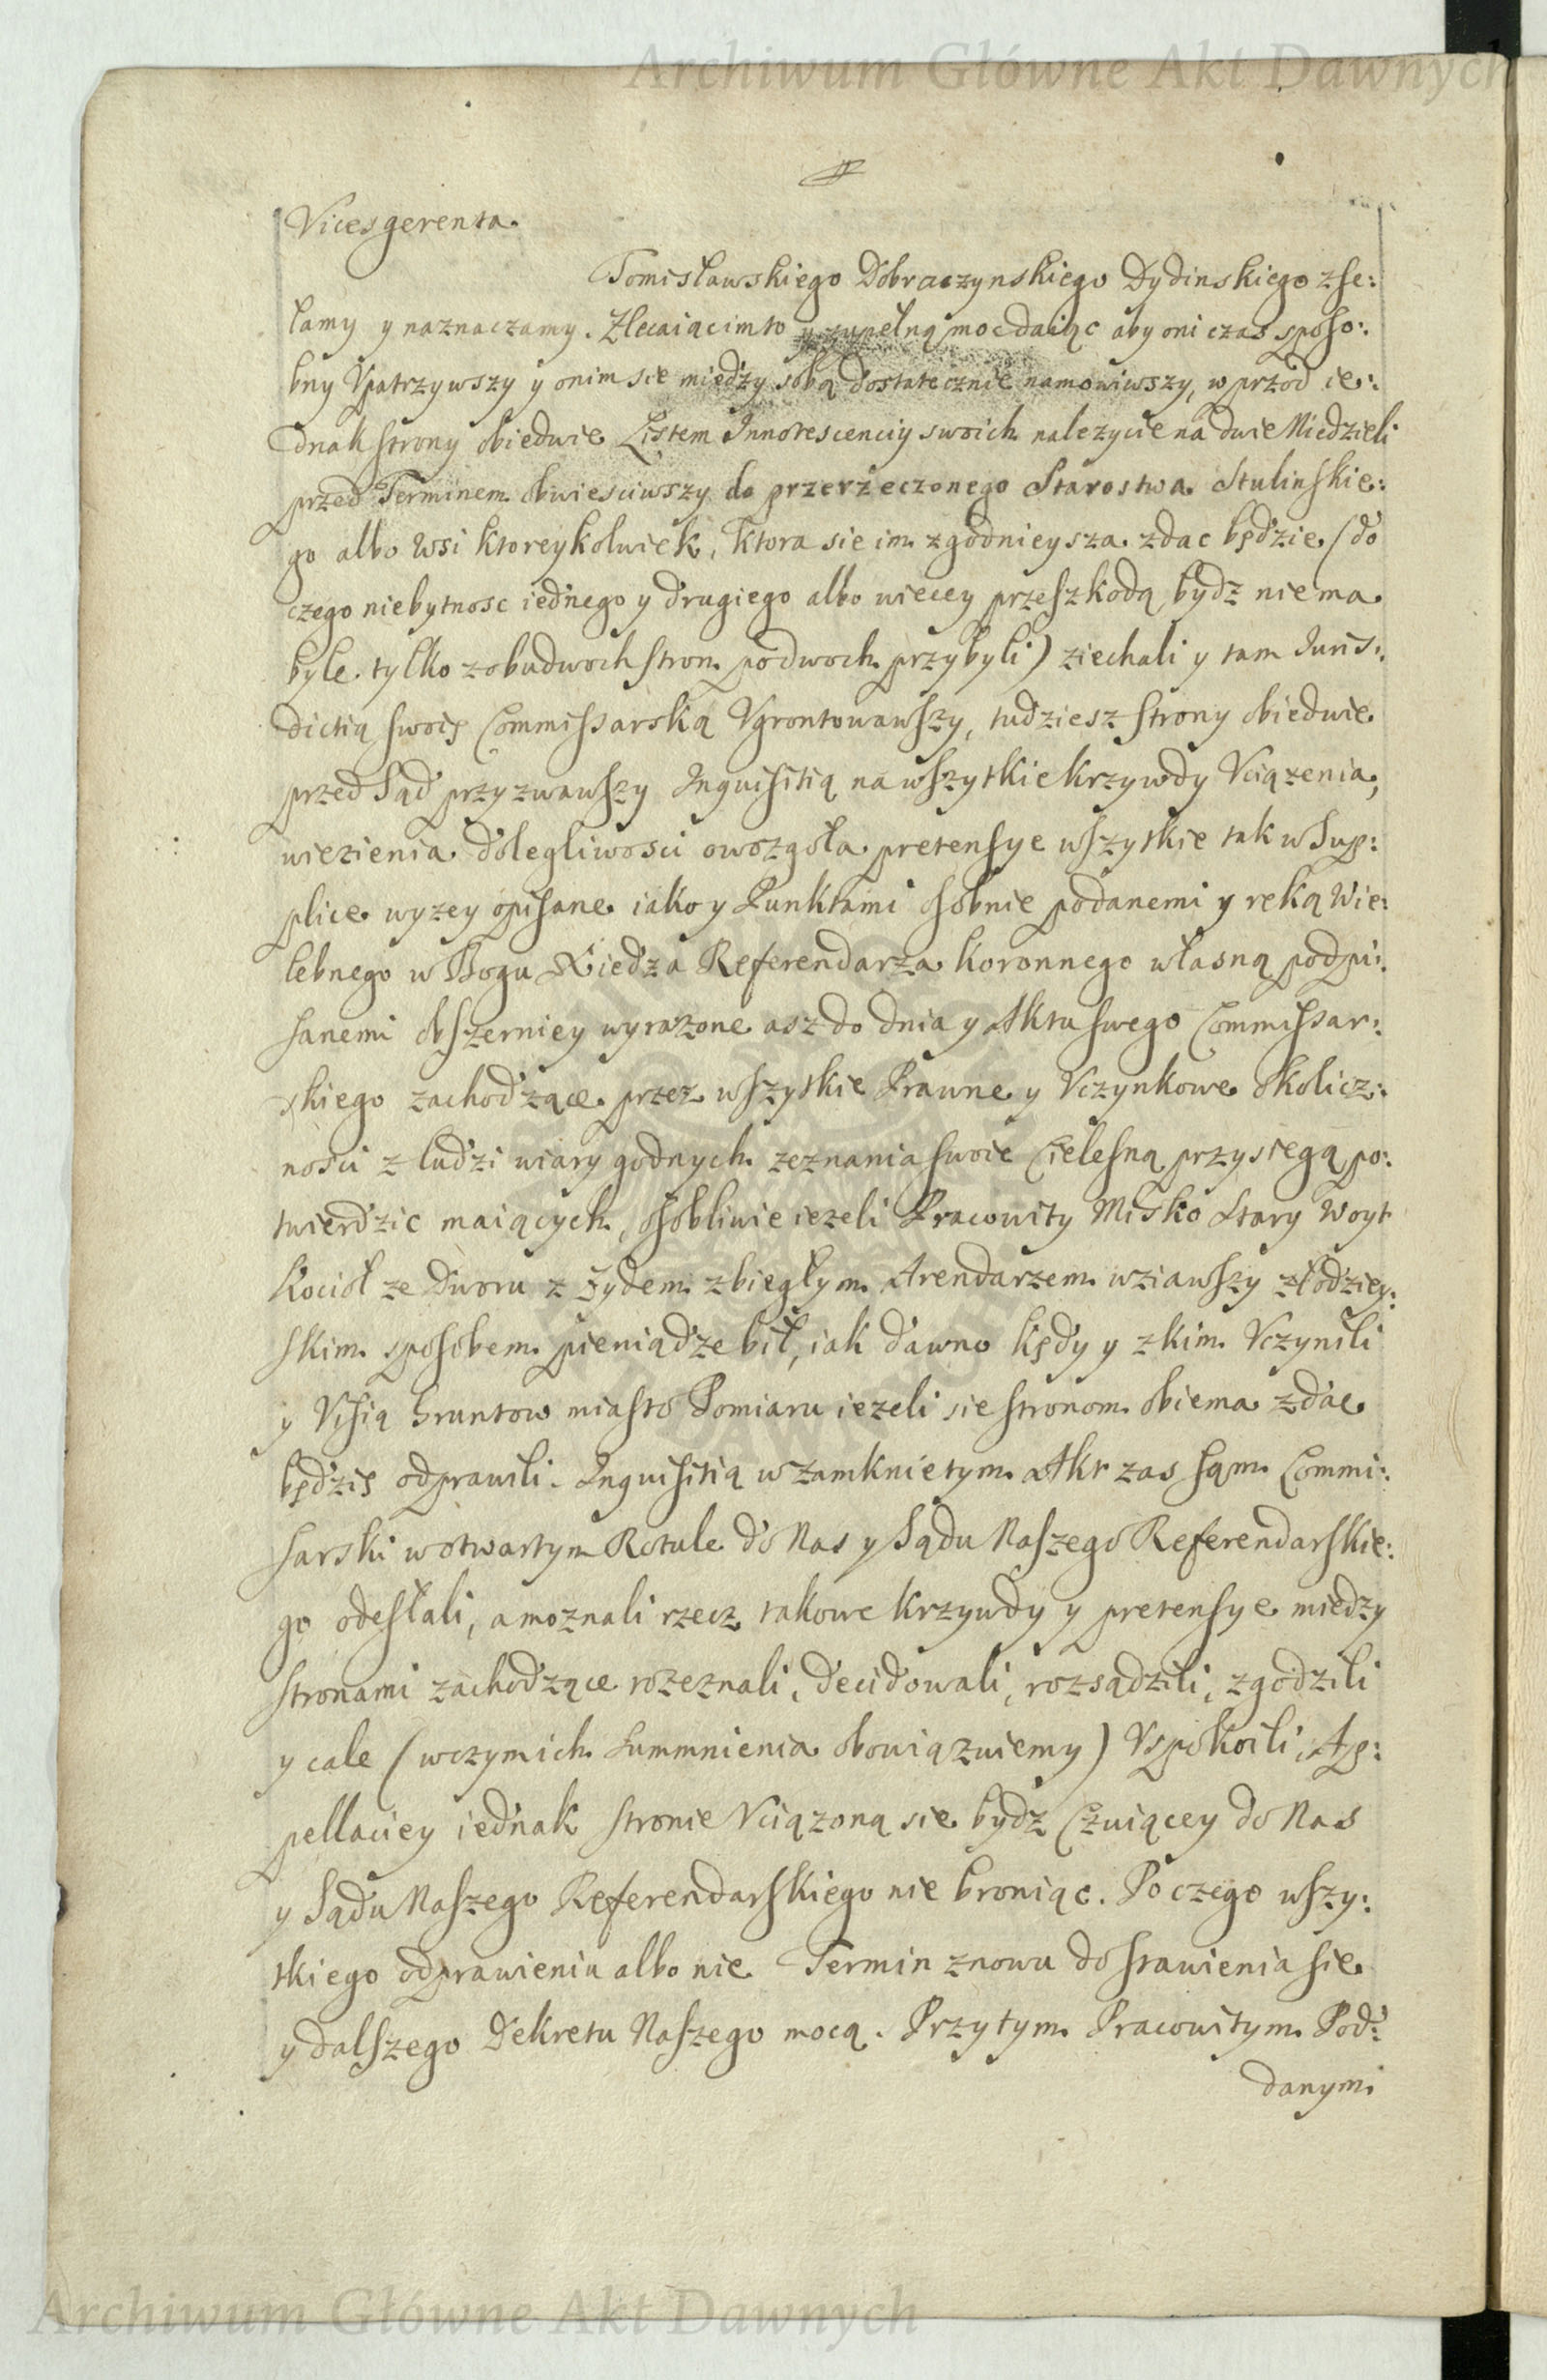 Archiwum Główne Akt Dawnych
Vicesgerenta.
Tomisławskiego Dobraczynskiego Dydinskiego zse:
łamy y naznaczamy. Zlecaiąc im to y zupełną moc daiąc aby oni czas sposo:
bny Vpatrzywszy y onim sie między sobą dostatecznie namowiwszy, wprzod ie:
dnak strony obiedwie Listem Innotescenciy swoich nalezycie na dwie Niedzieli
przed Terminem obwiesciwszy do przerzeczonego Starostwa Stulinskie:
go albo wsi ktoreykolwiek, ktora sie im zgodnieysza zdac będzie (do
czego niebytnosc iednego y drugiego albo wiecey przeszkodą bydz niema
byle tylko zobudwoch stron podwoch przybyli) ziechali y tam Iuris:
dictią swoię Commissarską Vgrontowawszy, tudziesz strony obiedwie
przed Sąd przyzwawszy Inquisitią na wszytkie krzywdy Vciązenia,
wiezienia dolegliwosci owozgoła pretensye wszytkie tak w Sup:
plice wyzey opisane iako y Punktami osobnie podanemi y reką Wie:
lebnego w Bogu Xiedza Referendarza Koronnego własną podpi:
sanemi obszerniey wyrazone asz do dnia y Aktu swego Commissar:
skiego zachodzące przez wszytkie Prawne y Vczynkowe okolicz:
nosci z ludzi wiary godnych zeznania swoie Cielesną przysiegą po:
twierdzic maiących, osobliwie iezeli Pracowity Misko Stary Woyt
Kocioł ze Dworu z Zydem zbiegłym Arendarzem wziawszy złodziey:
skim sposobem pieniądze bił, iak dawno kędy y zkim Vczynili
y Visią Gruntow miasto Pomiaru iezeli sie stronom obiema zdac
będzie odprawili. Inquisitią w zamknietym Akt zas sąm Commi:
sarski w otwartym Rotule do Nas y Sądu Naszego Referendarskie:
go odesłali, a moznali rzecz takowe krzywdy y pretensye miedzy
stronami zachodzące rozeznali, decidowali, rozsądzili, zgodzili
y cale (wczym ich Summnienia obowiązuiemy) Vspokoili, Ap:
pellaciey iednak stronie Vciązoną sie bydz Czuiącey do Nas
y Sądu Naszego Referendarskiego nie broniąc. Po czego wszy:
tkiego odprawieniu albo nie Termin znowu do stawienia sie
y dalszego Dekretu Naszego mocą. Przytym Pracowitym Pod:
danymi
Archiwum Główne Akt Dawnych